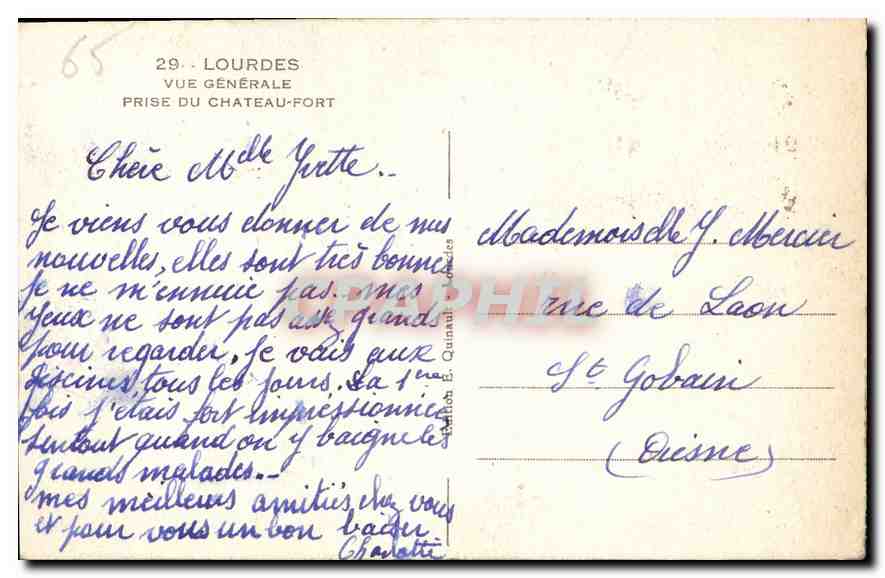 65
29 - LOURDES
VUE GÉNÉRALE
PRISE DU CHATEAU-FORT
Chère Mlle Yvette..
Je viens vous donner de mes
nouvelles, elles sont très bonnes
Je ne m'ennuie pas. mes
yeux ne sont pas assez grands
pour regarder. Je vais aux
piscines, tous les jours. La 1ère
fois j'étais fort impressionnée
surtout quand on y baigne les
grands malades..
mes meilleurs amitiés, chez vous
et pour vous un bon baiser
Charlotte
Edition E. Quinault Lourdes
Mademoiselle Y. Mercier
rue de Laon
St Gobain
(Aisne)
APHIL